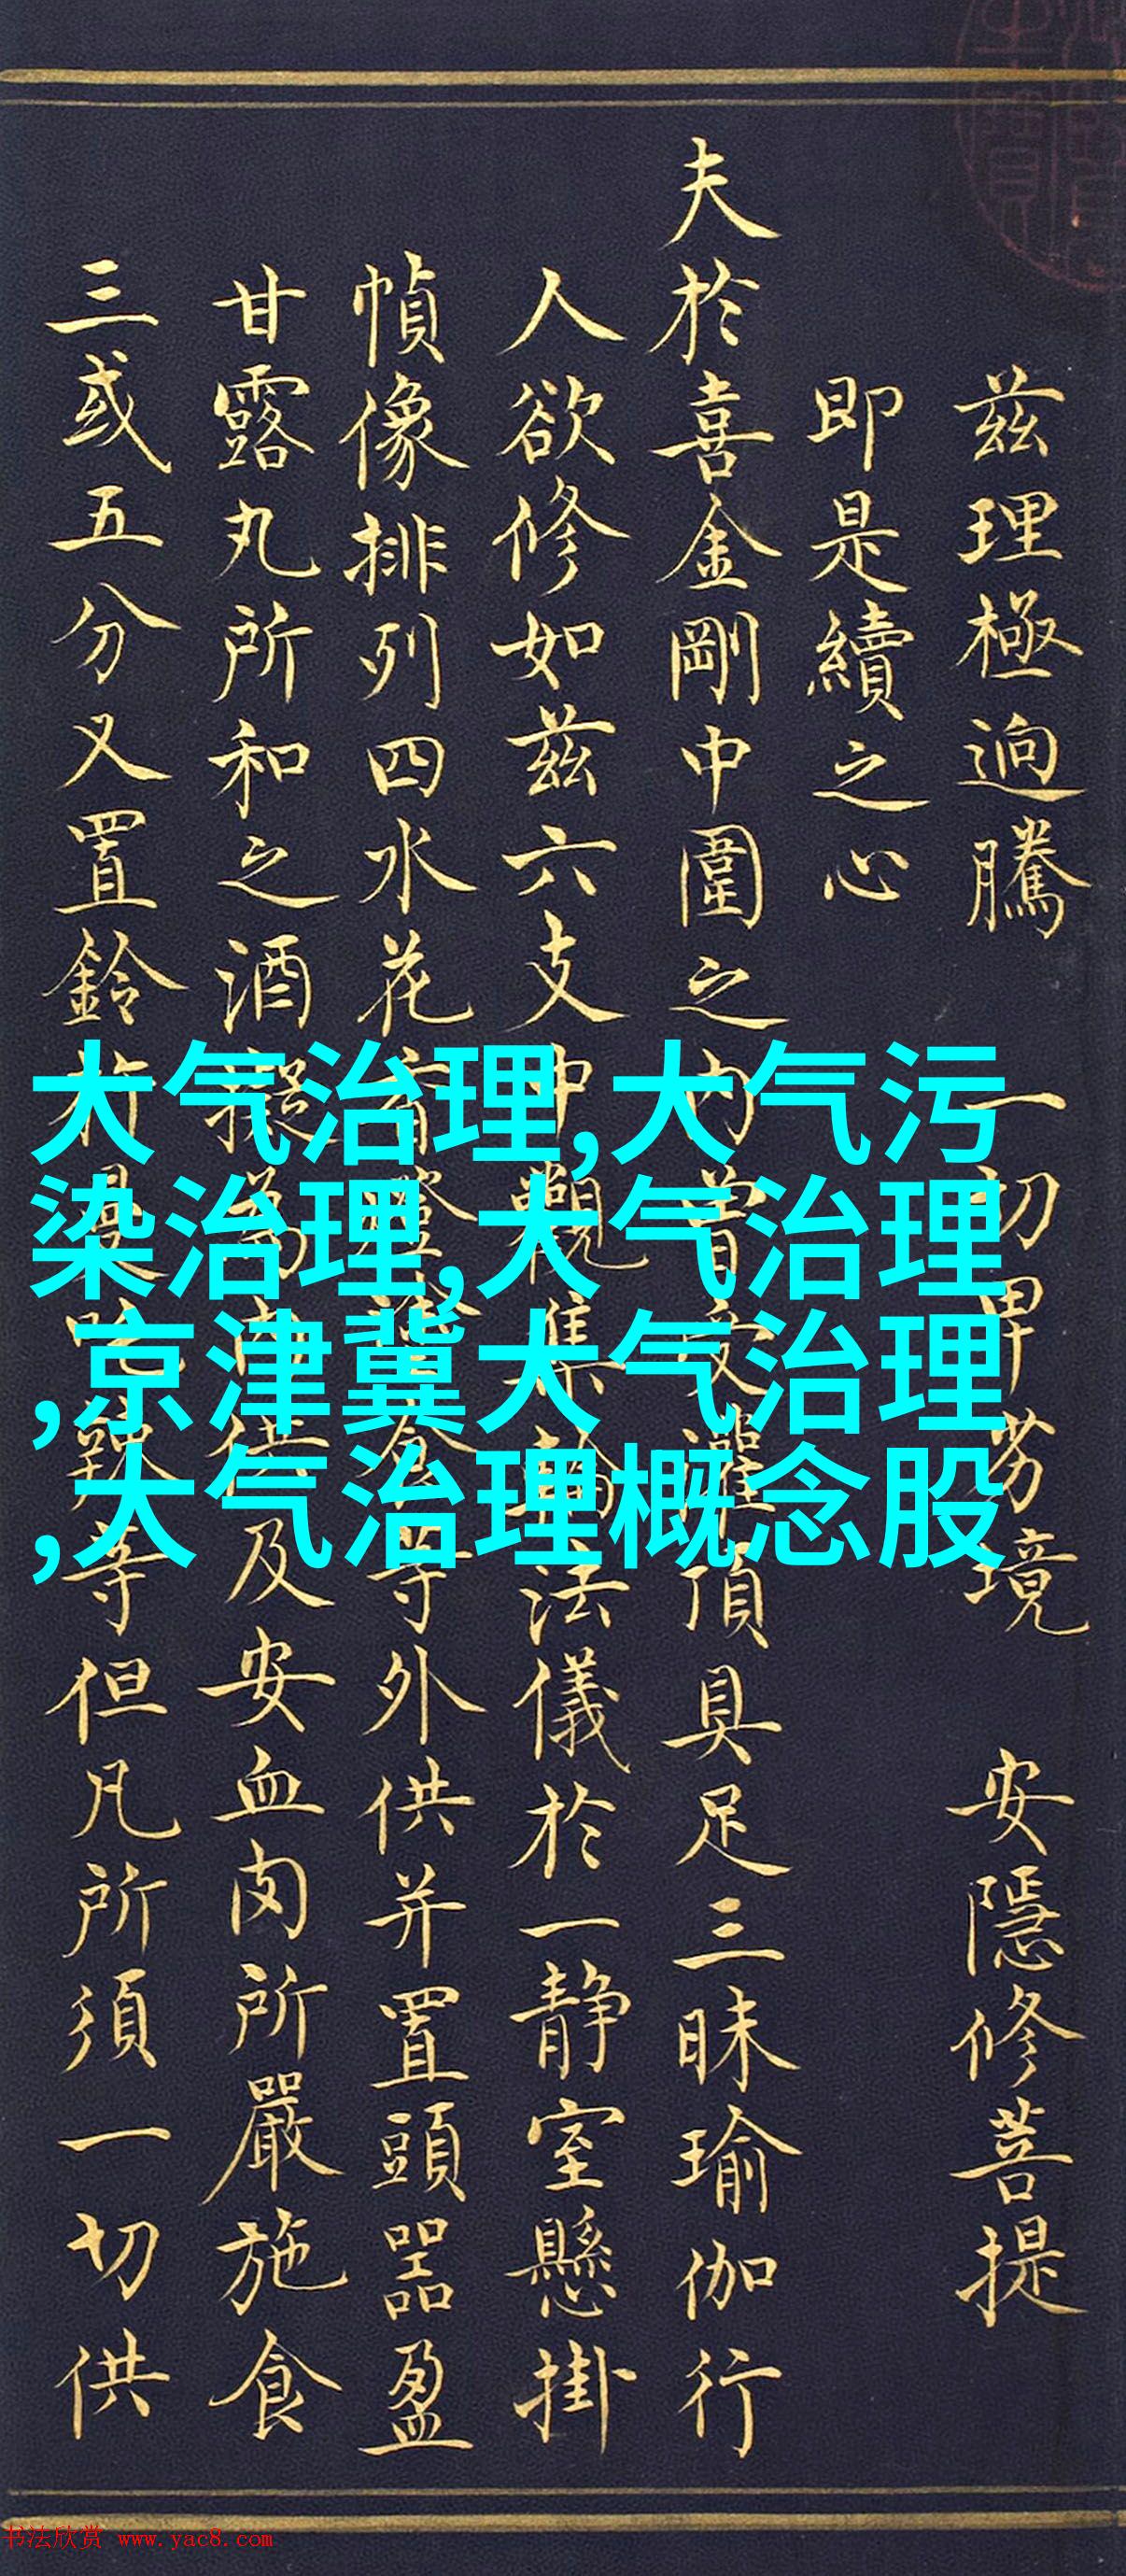 茲理極逈騰 一切卑劣境 安隱修菩提
即是續之心
夫於喜金剛中圍之內曾受灌頂具足三昧瑜伽行
人欲修如茲六支中觀集輪法儀於一靜室懸掛
幀像排列四水花食等外供并置頭器盈
甘露丸所和之酒擬供及安血肉所嚴施食
三或五分又置鈴杵等但凡所須一切供
大气治理,大气污
染治理,大气治理
,京津冀大气治理
,大气治理概念股
书法欣赏 www.yac8.com